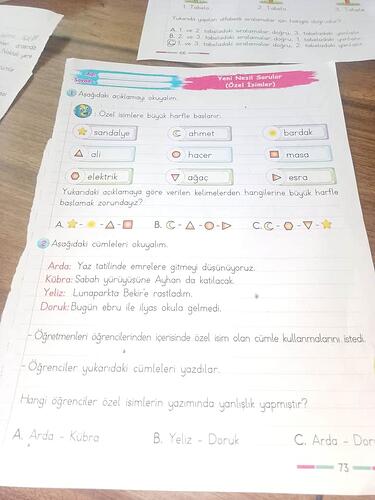 1. Tabela
2. Tabela
3. Tabela
Yukarıda yapılan alfabetik sıralamalar için hangisi doğrudur?
A. 1. ve 2. tabeladaki sıralamalar doğru, 3. tabeladaki yanlıştır.
B. 2. ve 3. tabeladaki sıralamalar doğru, 1. tabeladaki yanlıştır.
C. 1. ve 3. tabeladaki sıralamalar doğru, 2. tabeladaki yanlıştır.
Adı
Soyadı
Yeni Nesil Sorular
(Özel İsimler)
1 Aşağıdaki açıklamayı okuyalım.
Özel isimlere büyük harfle başlanır.
sandalye
ahmet
bardak
ali
hacer
masa
elektrik
ağaç
esra
Yukarıdaki açıklamaya göre verilen kelimelerden hangilerine büyük harfle
başlamak zorundayız?
A. - - -
B. - - -
C. - - -
2 Aşağıdaki cümleleri okuyalım.
Arda: Yaz tatilinde emrelere gitmeyi düşünüyoruz.
Kübra: Sabah yürüyüşüne Ayhan da katılacak.
Yeliz: Lunaparkta Bekir'e rastladım.
Doruk: Bugün ebru ile ilyas okula gelmedi.
- Öğretmenleri öğrencilerinden içerisinde özel isim olan cümle kullanmalarını istedi.
- Öğrenciler yukarıdaki cümleleri yazdılar.
Hangi öğrenciler özel isimlerin yazımında yanlışlık yapmıştır?
A. Arda - Kübra
B. Yeliz - Doruk
C. Arda - Dor
73